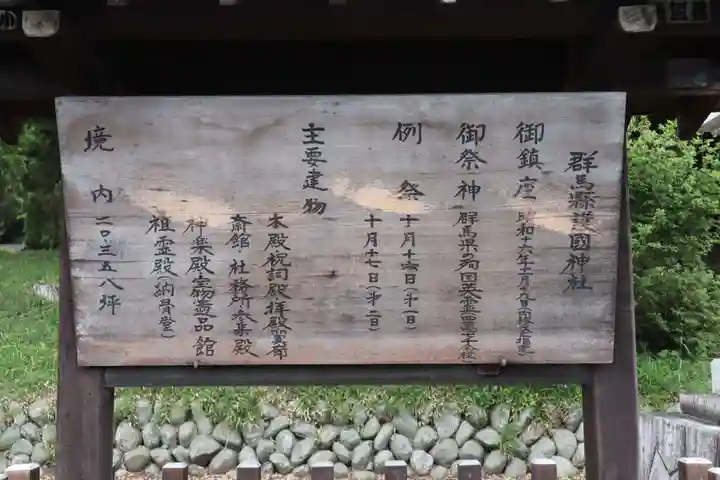 群馬縣護國神社
御鎮座 昭和十六年十一月十九日
御祭神 群馬県の殉国英霊四万七千余柱
例祭 十月十六日(第一日)
十月十七日(第二日)
主要建物
本殿祝詞殿拝殿
斎館・社務所参集殿
神楽殿宝物遺品館
祖霊殿(納骨堂)
境内 二〇・三五八坪